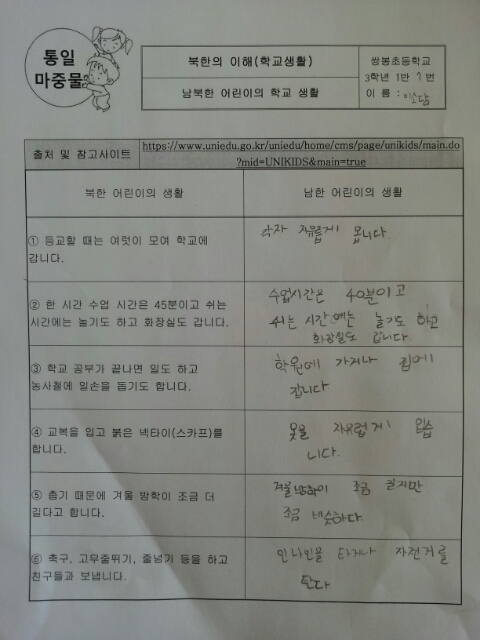 통일
마중물
북한의 이해(학교생활)
남북한 어린이의 학교 생활
쌍봉초등학교
3학년 1반 9번
이 름 : 이소담
출처 및 참고사이트
https://www.uniedu.go.kr/uniedu/home/cms/page/unikids/main.do
?mid=UNIKIDS&main=true
북한 어린이의 생활
남한 어린이의 생활
① 등교할 때는 여럿이 모여 학교에
갑니다.
각자 자유롭게 옵니다.
② 한 시간 수업 시간은 45분이고 쉬는
시간에는 놀기도 하고 화장실도 갑니다.
수업시간은 40분이고
쉬는 시간에는 놀기도 하고
화장실도 갑니다
③ 학교 공부가 끝나면 일도 하고
농사철에 일손을 돕기도 합니다.
학원에 가거나 집에
갑니다
④ 교복을 입고 붉은 넥타이(스카프)를
합니다.
옷을 자유럽게 입습
니다.
⑤ 춥기 때문에 겨울 방학이 조금 더
길다고 합니다.
겨울방학이 조금 길지만
조금 비슷하다
⑥ 축구, 고무줄뛰기, 줄넘기 등을 하고
친구들과 보냅니다.
인나인을 타거나 자전거를
탄다